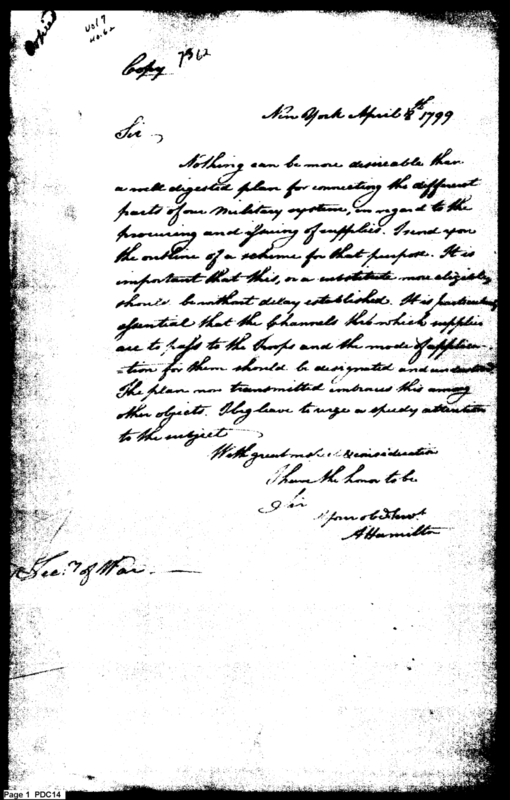 Copied
Vol 7
No. 62
Copy 7362
New York April 8th 1799
Sir
Nothing can be more desireable than
a well digested plan for connecting the different
parts of our military system, in regard to the
procuring and issuing of supplies. I send you
the outline of a scheme for that purpose. It is
important that this, or a substitute more eligible,
should be without delay established. It is particularly
essential that the Channels thro which supplies
are to pass to the troops and the mode of applica-
-tion for them should be designated and understood
The plan now transmitted embraces this among
other objects. I beg leave to urge a speedy attention
to the subject
With great & consideration
I have the honor to be
Sir
Your ob Servt
A Hamilton
Secy of War.
Page 1 PDC14